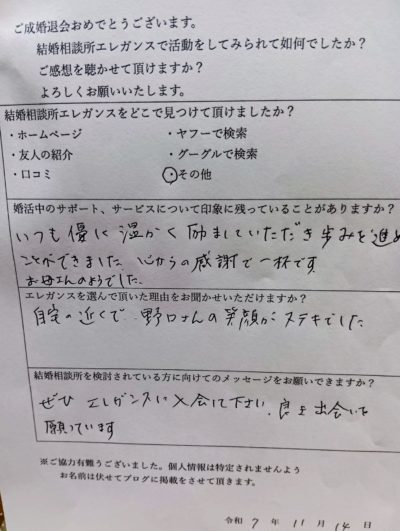 ご成婚退会おめでとうございます。
結婚相談所エレガンスで活動をしてみられて如何でしたか？
ご感想を聴かせて頂けますか？
よろしくお願いいたします。
結婚相談所エレガンスをどこで見つけて頂けましたか？
・ホームページ ・ヤフーで検索
・友人の紹介 ・グーグルで検索
・口コミ ・その他
婚活中のサポート、サービスについて印象に残っていることがありますか？
いつも優に温かく励ましていただき歩みを進め
ことができました 心からの感謝で一杯です
お母さんのようでした。
エレガンスを選んで頂いた理由をお聞かせいただけますか？
自宅の近くで 野口さんの笑顔がステキでした
結婚相談所を検討されている方に向けてのメッセージをお願いできますか？
ぜひ エレガンスに入会して下さい、良き出会いを
願っています
※ご協力有難うございました。個人情報は特定されませんよう
お名前は伏せてブログに掲載をさせて頂きます。
令和 7 年 11 月 14 日